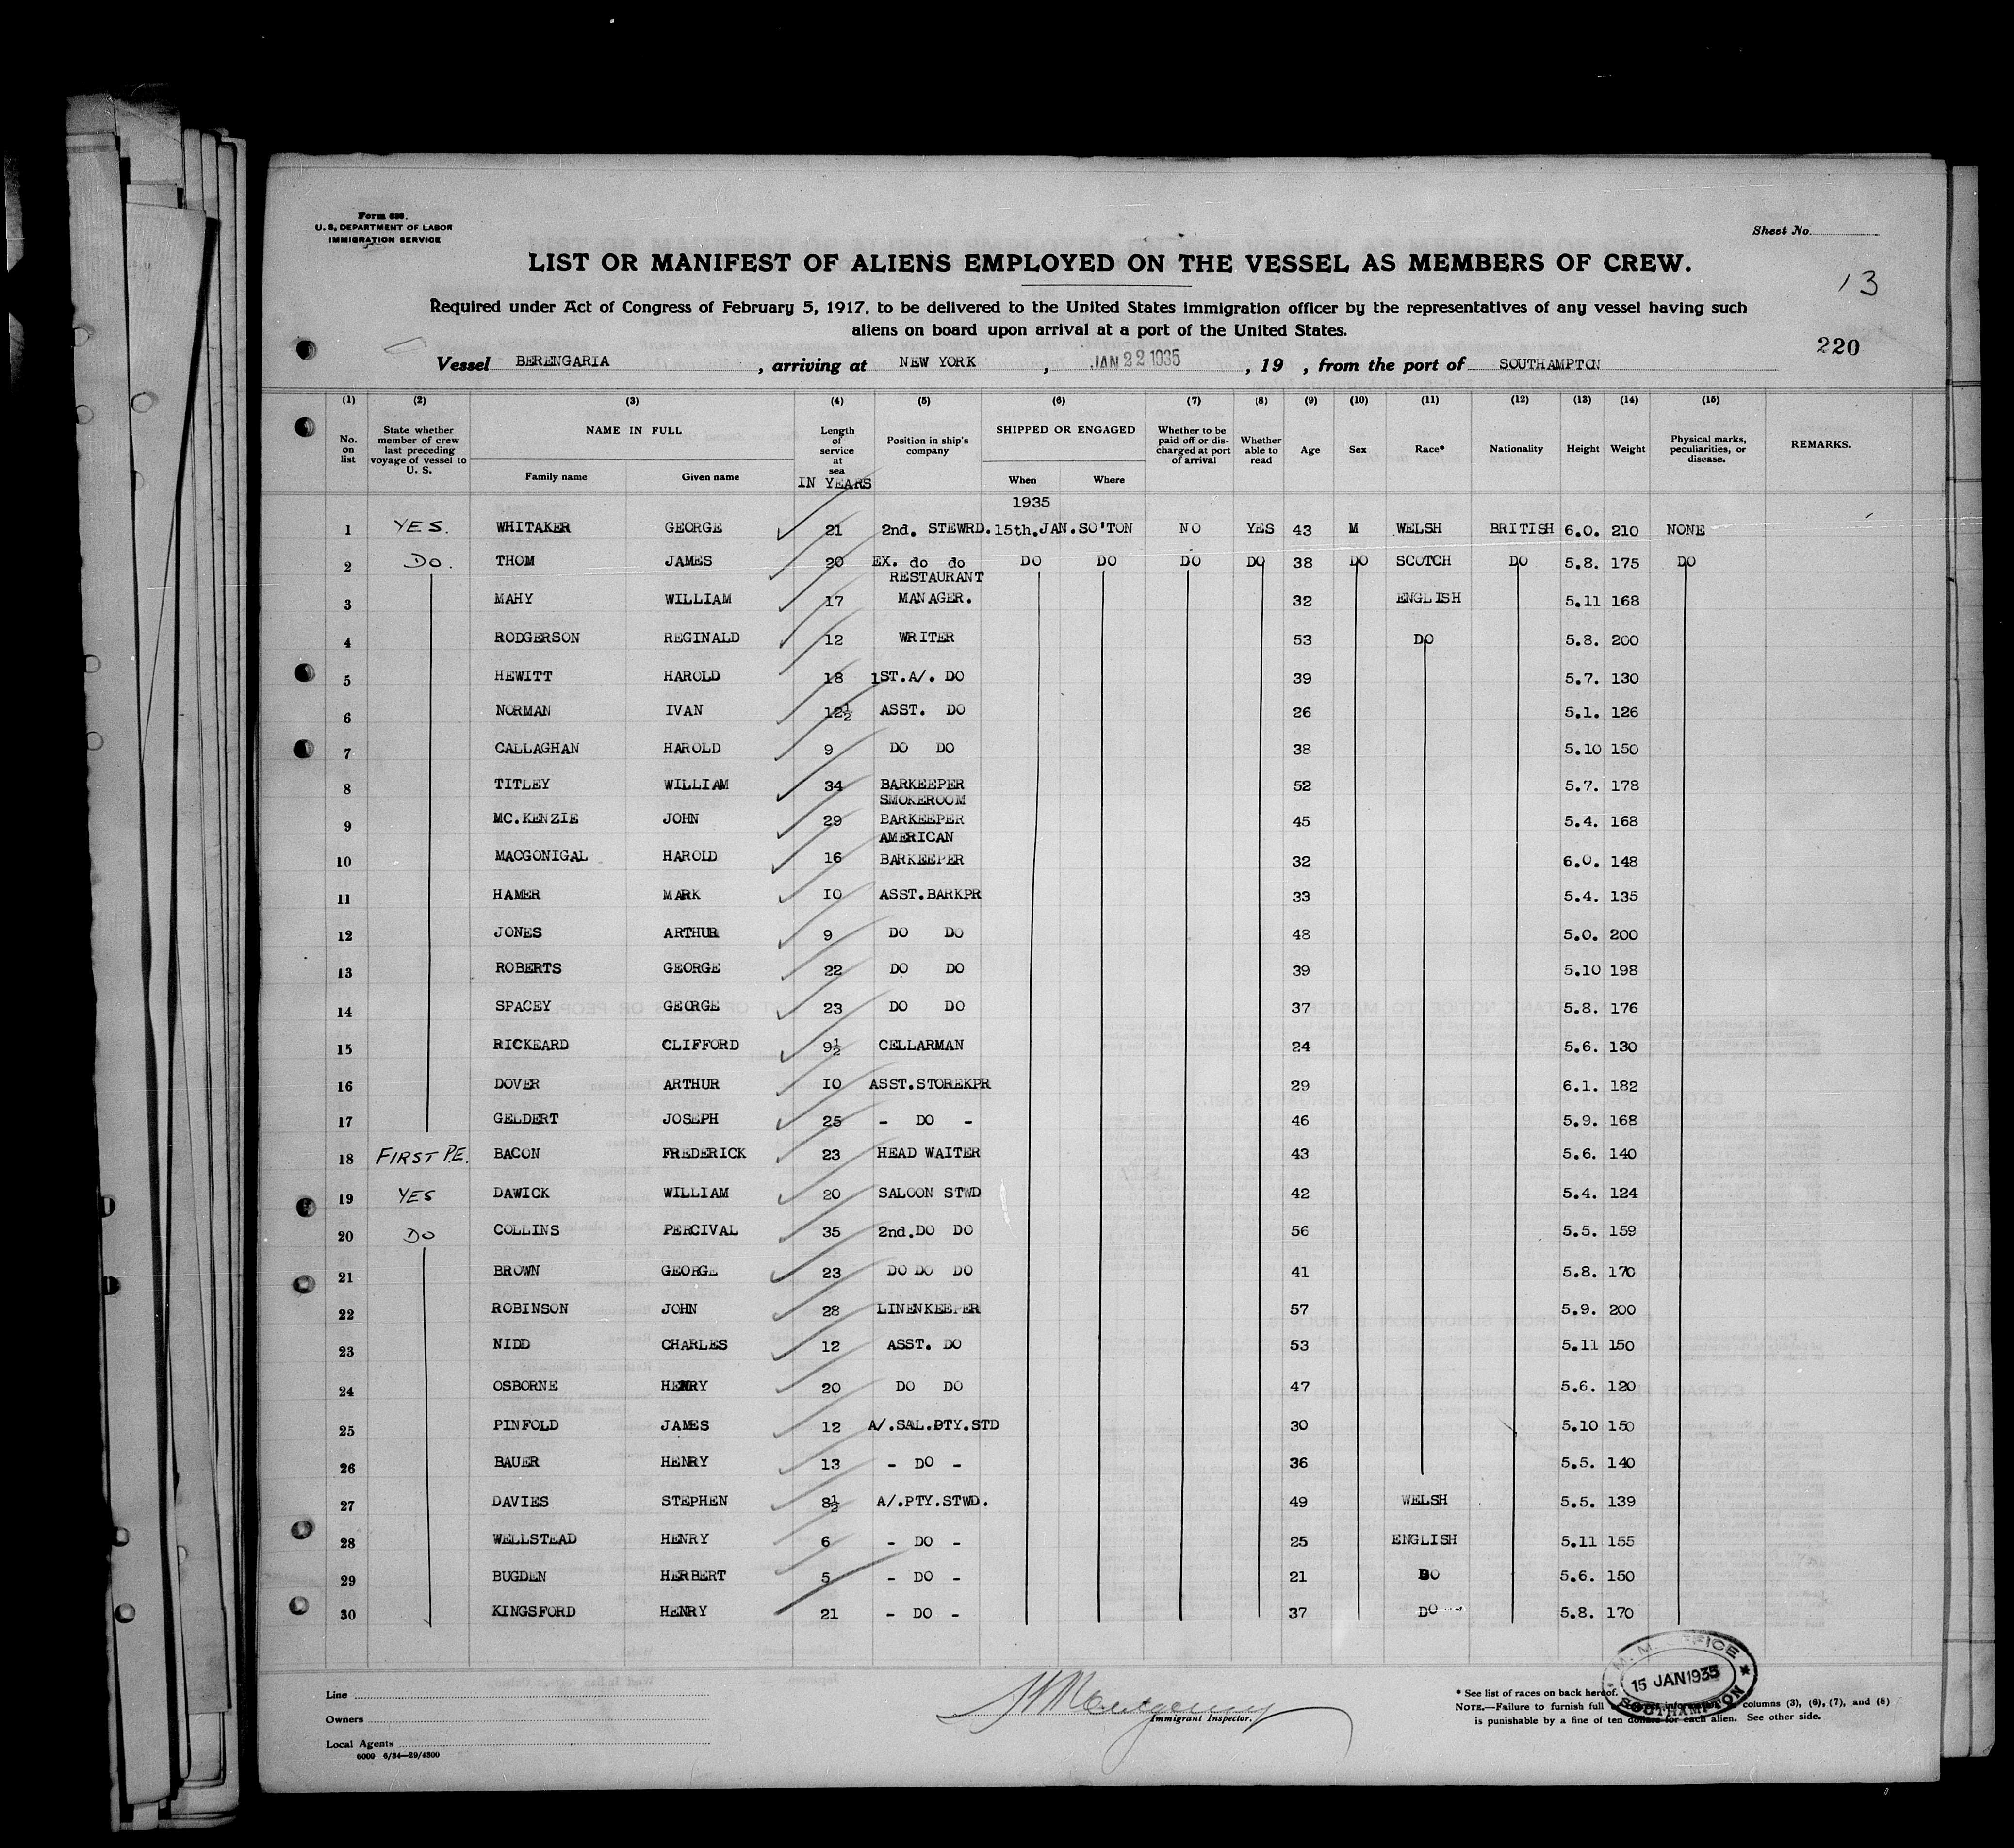 Form 680.
U. S. DEPARTMENT OF LABOR
IMMIGRATION SERVICE
Sheet No.
LIST OR MANIFEST OF ALIENS EMPLOYED ON THE VESSEL AS MEMBERS OF CREW.
13
Required under Act of Congress of February 5, 1917, to be delivered to the United States immigration officer by the representatives of any vessel having such
aliens on board upon arrival at a port of the United States.
220
Vessel BERENGARIA , arriving at NEW YORK , JAN 22 1935 , 19 , from the port of SOUTHAMPTON
(1) (2) (3) (4) (5) (6) (7) (8) (9) (10) (11) (12) (13) (14) (15)
No. on list State whether member of crew last preceding voyage of vessel to U. S. NAME IN FULL Family name Given name Length of service at sea IN YEARS Position in ship's company SHIPPED OR ENGAGED When Where Whether to be paid off or discharged at port of arrival Whether able to read Age Sex Race* Nationality Height Weight Physical marks, peculiarities, or disease. REMARKS.
1935
1 YES. WHITAKER GEORGE 21 2nd. STEWRD. 15th.JAN. SO'TON NO YES 43 M WELSH BRITISH 6.0. 210 NONE
2 DO. THOM JAMES 20 EX. do do DO DO DO DO 38 DO SCOTCH DO 5.8. 175 DO
3 MAHY WILLIAM 17 RESTAURANT MANAGER. 32 ENGLISH 5.11 168
4 RODGERSON REGINALD 12 WRITER 53 DO 5.8. 200
5 HEWITT HAROLD 18 1ST.A/. DO 39 5.7. 130
6 NORMAN IVAN 12½ ASST. DO 26 5.1. 126
7 CALLAGHAN HAROLD 9 DO DO 38 5.10 150
8 TITLEY WILLIAM 34 BARKEEPER 52 5.7. 178
9 MC.KENZIE JOHN 29 SMOKEROOM BARKEEPER 45 5.4. 168
10 MACGONIGAL HAROLD 16 AMERICAN BARKEEPER 32 6.0. 148
11 HAMER MARK 10 ASST.BARKPR 33 5.4. 135
12 JONES ARTHUR 9 DO DO 48 5.0. 200
13 ROBERTS GEORGE 22 DO DO 39 5.10 198
14 SPACEY GEORGE 23 DO DO 37 5.8. 176
15 RICKEARD CLIFFORD 9½ CELLARMAN 24 5.6. 130
16 DOVER ARTHUR 10 ASST.STOREKPR 29 6.1. 182
17 GELDERT JOSEPH 25 - DO - 46 5.9. 168
18 FIRST P.E. BACON FREDERICK 23 HEAD WAITER 43 5.6. 140
19 YES DAWICK WILLIAM 20 SALOON STWD 42 5.4. 124
20 DO COLLINS PERCIVAL 35 2nd.DO DO 56 5.5. 159
21 BROWN GEORGE 23 DO DO DO 41 5.8. 170
22 ROBINSON JOHN 28 LINENKEEPER 57 5.9. 200
23 NIDD CHARLES 12 ASST. DO 53 5.11 150
24 OSBORNE HENRY 20 DO DO 47 5.6. 120
25 PINFOLD JAMES 12 A/.SAL.PTY.STD 30 5.10 150
26 BAUER HENRY 13 - DO - 36 5.5. 140
27 DAVIES STEPHEN 8½ A/.PTY.STWD. 49 WELSH 5.5. 139
28 WELLSTEAD HENRY 6 - DO - 25 ENGLISH 5.11 155
29 BUGDEN HERBERT 5 - DO - 21 DO 5.6. 150
30 KINGSFORD HENRY 21 - DO - 37 DO 5.8. 170
Line
Owners
Local Agents
6000 6/34—29/4300
Immigrant Inspector.
* See list of races on back hereof.
NOTE.—Failure to furnish full columns (3), (6), (7), and (8)
is punishable by a fine of ten dollars for each alien. See other side.
M. M. OFFICE
15 JAN 1935
SOUTHAMPTON